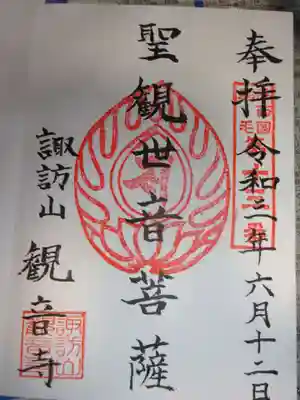 奉拝 令和三年六月十二日
聖観世音菩薩
諏訪山 観音寺